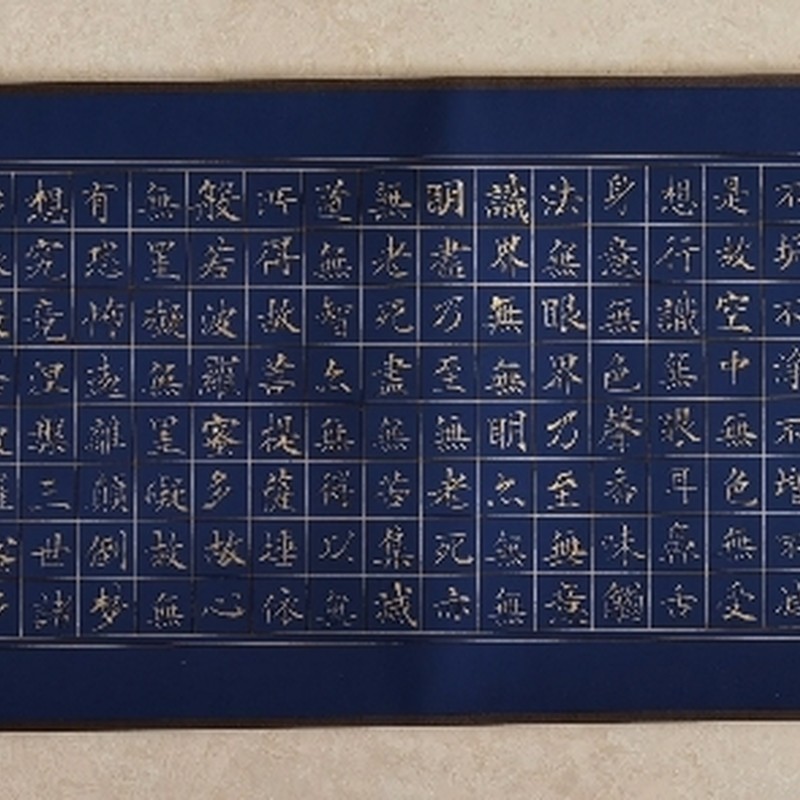 不垢不淨不增不減
是故空中無色無受
想行識無眼耳鼻舌
身意無色聲香味觸
法無眼界乃至無意
識界無無明亦無無
明盡乃至無老死亦
無老死盡無苦集滅
道無智亦無得以無
所得故菩提薩埵依
般若波羅蜜多故心
無罣礙無罣礙故無
有恐怖遠離顛倒夢
想究竟涅槃三世諸